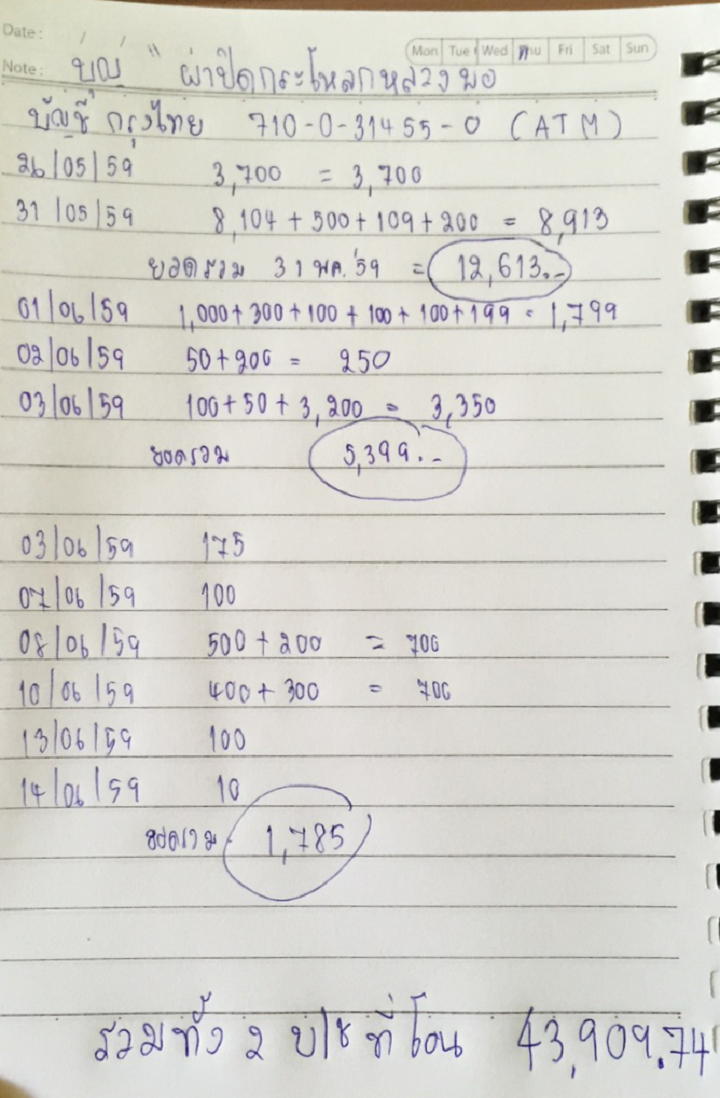 Date: / /
Mon Tue Wed Thu Fri Sat Sun
Note: บุญ " ผ่าปิดกระโหลกหลวงพ่อ
บัญชี กรุงไทย 710-0-31455-0 (ATM)
26/05/59 3,700 = 3,700
31/05/59 8,104 + 500 + 109 + 200 = 8,913
ยอดรวม 31 พค.'59 = 12,613.-
01/06/59 1,000 + 300 + 100 + 100 + 100 + 199 = 1,799
02/06/59 50 + 200 = 250
03/06/59 100 + 50 + 3,200 = 3,350
ยอดรวม 5,399.-
03/06/59 175
07/06/59 100
08/06/59 500 + 200 = 700
10/06/59 400 + 300 = 700
13/06/59 100
14/06/59 10
ยอดรวม 1,785
รวมทั้ง 2 บ/ช ที่โอน 43,909.74